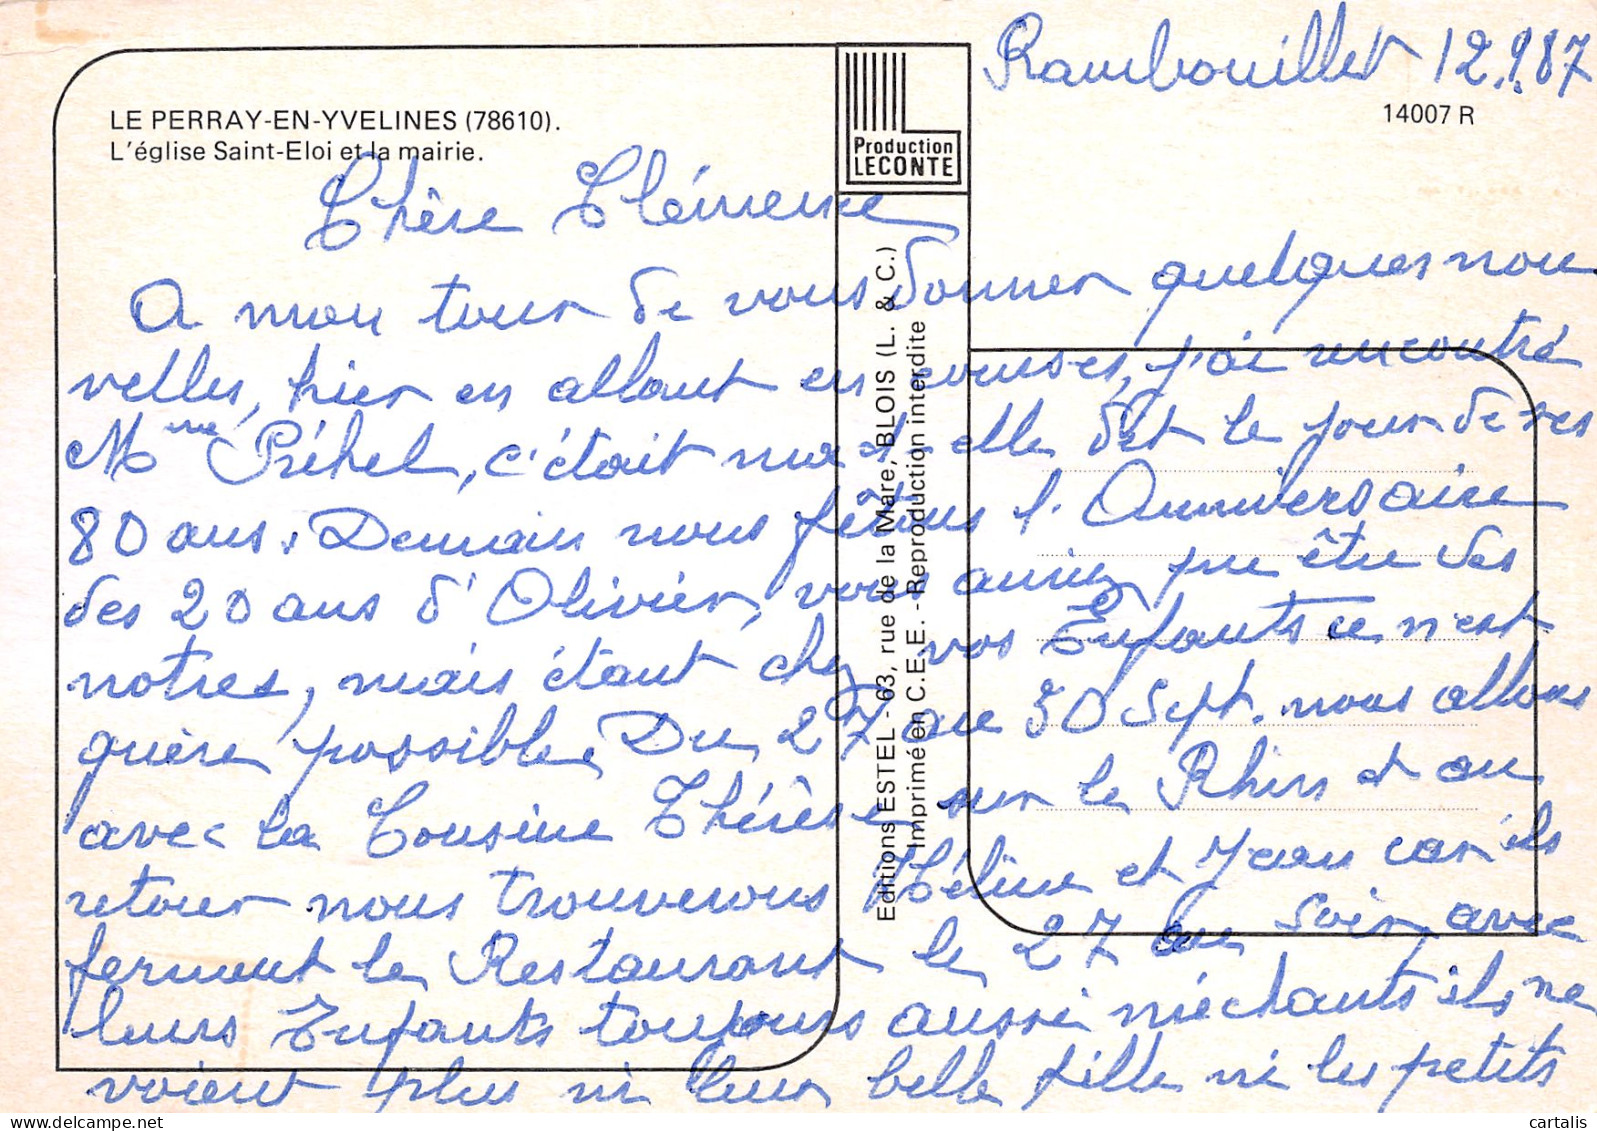 Rambouillet 12.9.87
14007 R
LE PERRAY-EN-YVELINES (78610).
L'église Saint-Eloi et la mairie.
Production
LECONTE
Editions ESTEL - 63, rue de la Mare, BLOIS (L. & C.)
Imprimé en C.E.E. - Reproduction interdite
Chère Clémence
A mon tour de vous donner quelques nou
velles, hier en allant en courses, j'ai rencontré
Mme Préhel, c'était me dit le jour de ses
80 ans. Demain nous fêtons l'Anniversaire
des 20 ans d'Olivier, vous auriez pu être des
notres, mais étant chez vos Enfants ce n'est
guère possible. Du 27 au 30 Sept. nous allons
avec la Cousine Thérèse sur le Rhin et au
retour nous trouverons Hélène et Jean car ils
ferment le Restaurant le 27 au Soir, avec
leurs Enfants toujours aussi méchants ils ne
voient plus ni leur belle fille ni les petits
cartalis